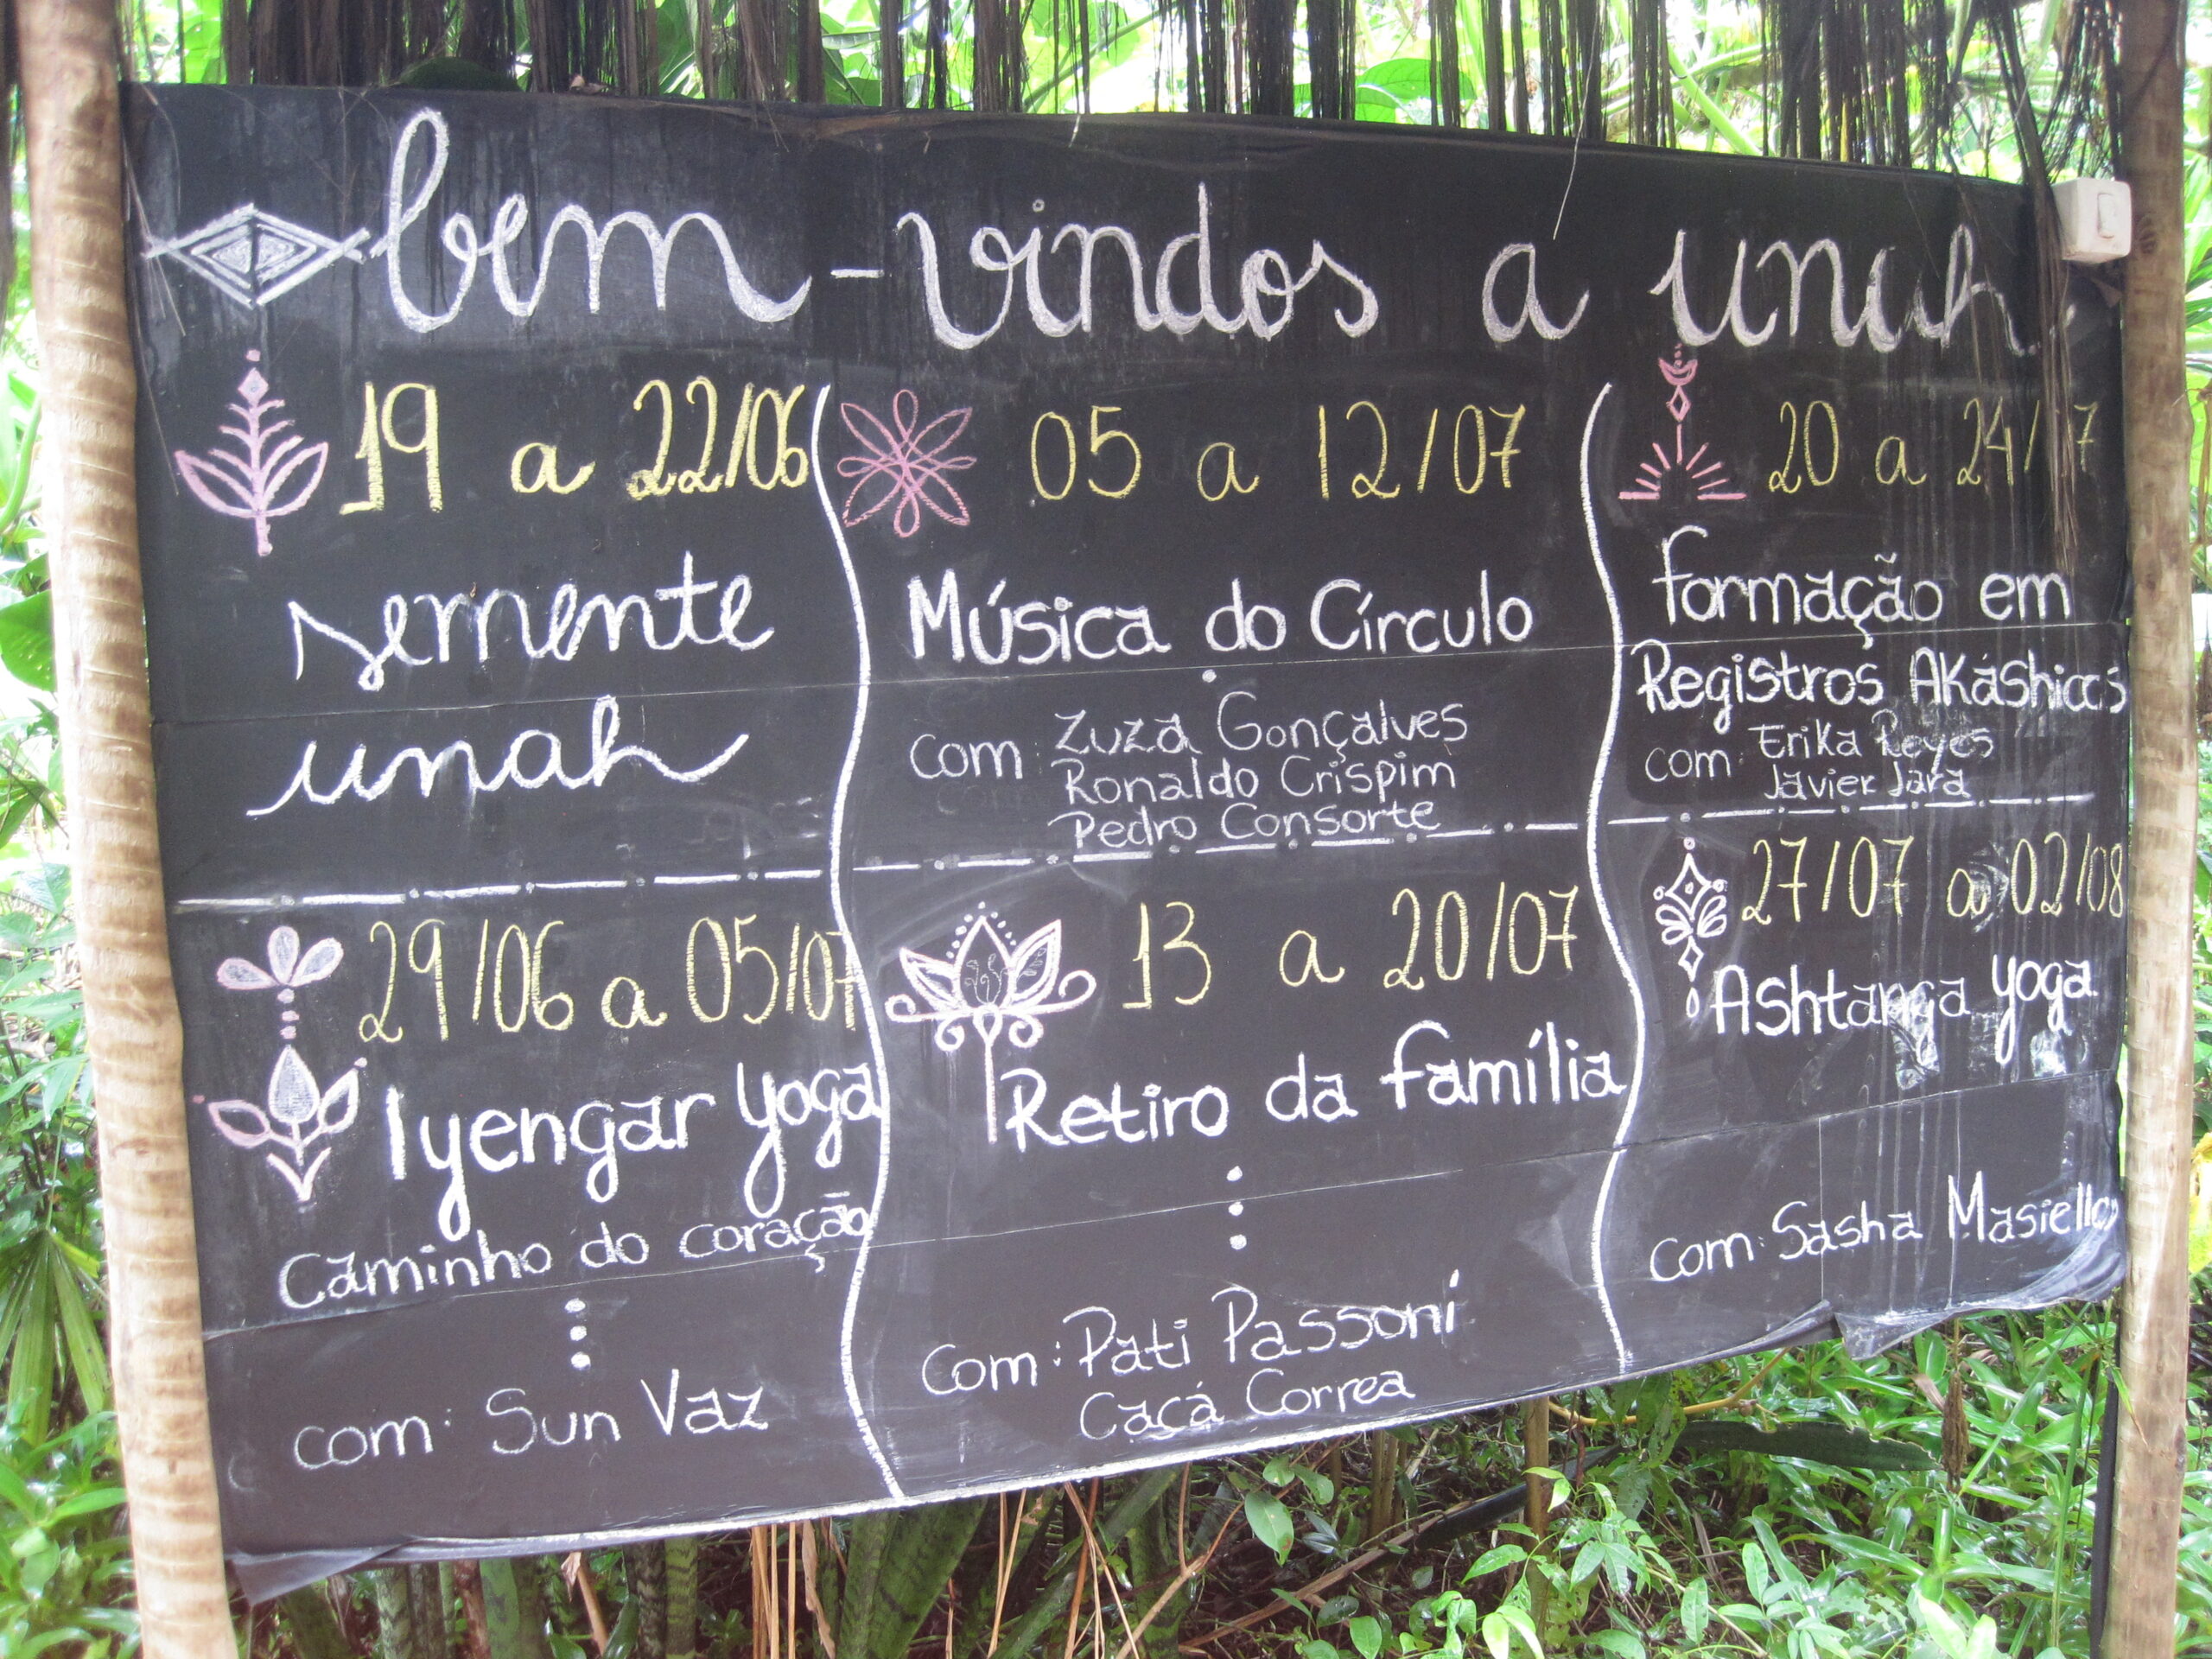 bem-vindos a unah
19 a 22/06
semente
unah
29/06 a 05/07
Iyengar yoga
Caminho do coração
com: Sun Vaz
05 a 12/07
Música do Círculo
com: Zuza Gonçalves
Ronaldo Crispim
Pedro Consorte
13 a 20/07
Retiro da família
com: Pati Passoni
Cacá Correa
20 a 24/07
formação em
Registros Akáshicos
com: Erika Reyes
Javier Jara
27/07 a 02/08
Ashtanga yoga
com: Sasha Masiello